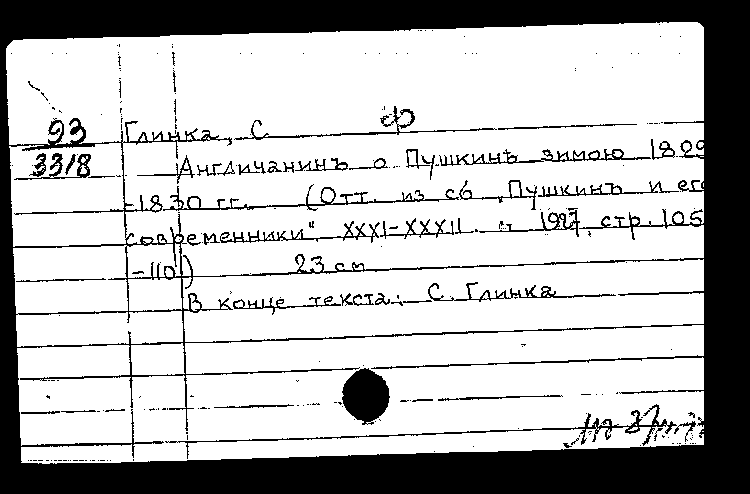 ф
93 Глинка, С
3318 Англичанинъ о Пушкинѣ зимою 1829
-1830 гг. (Отт. из сб „Пушкинъ и его
современники". XXXI-XXXII. 1927, стр. 105
-110) 23 см
В конце текста: С. Глинка